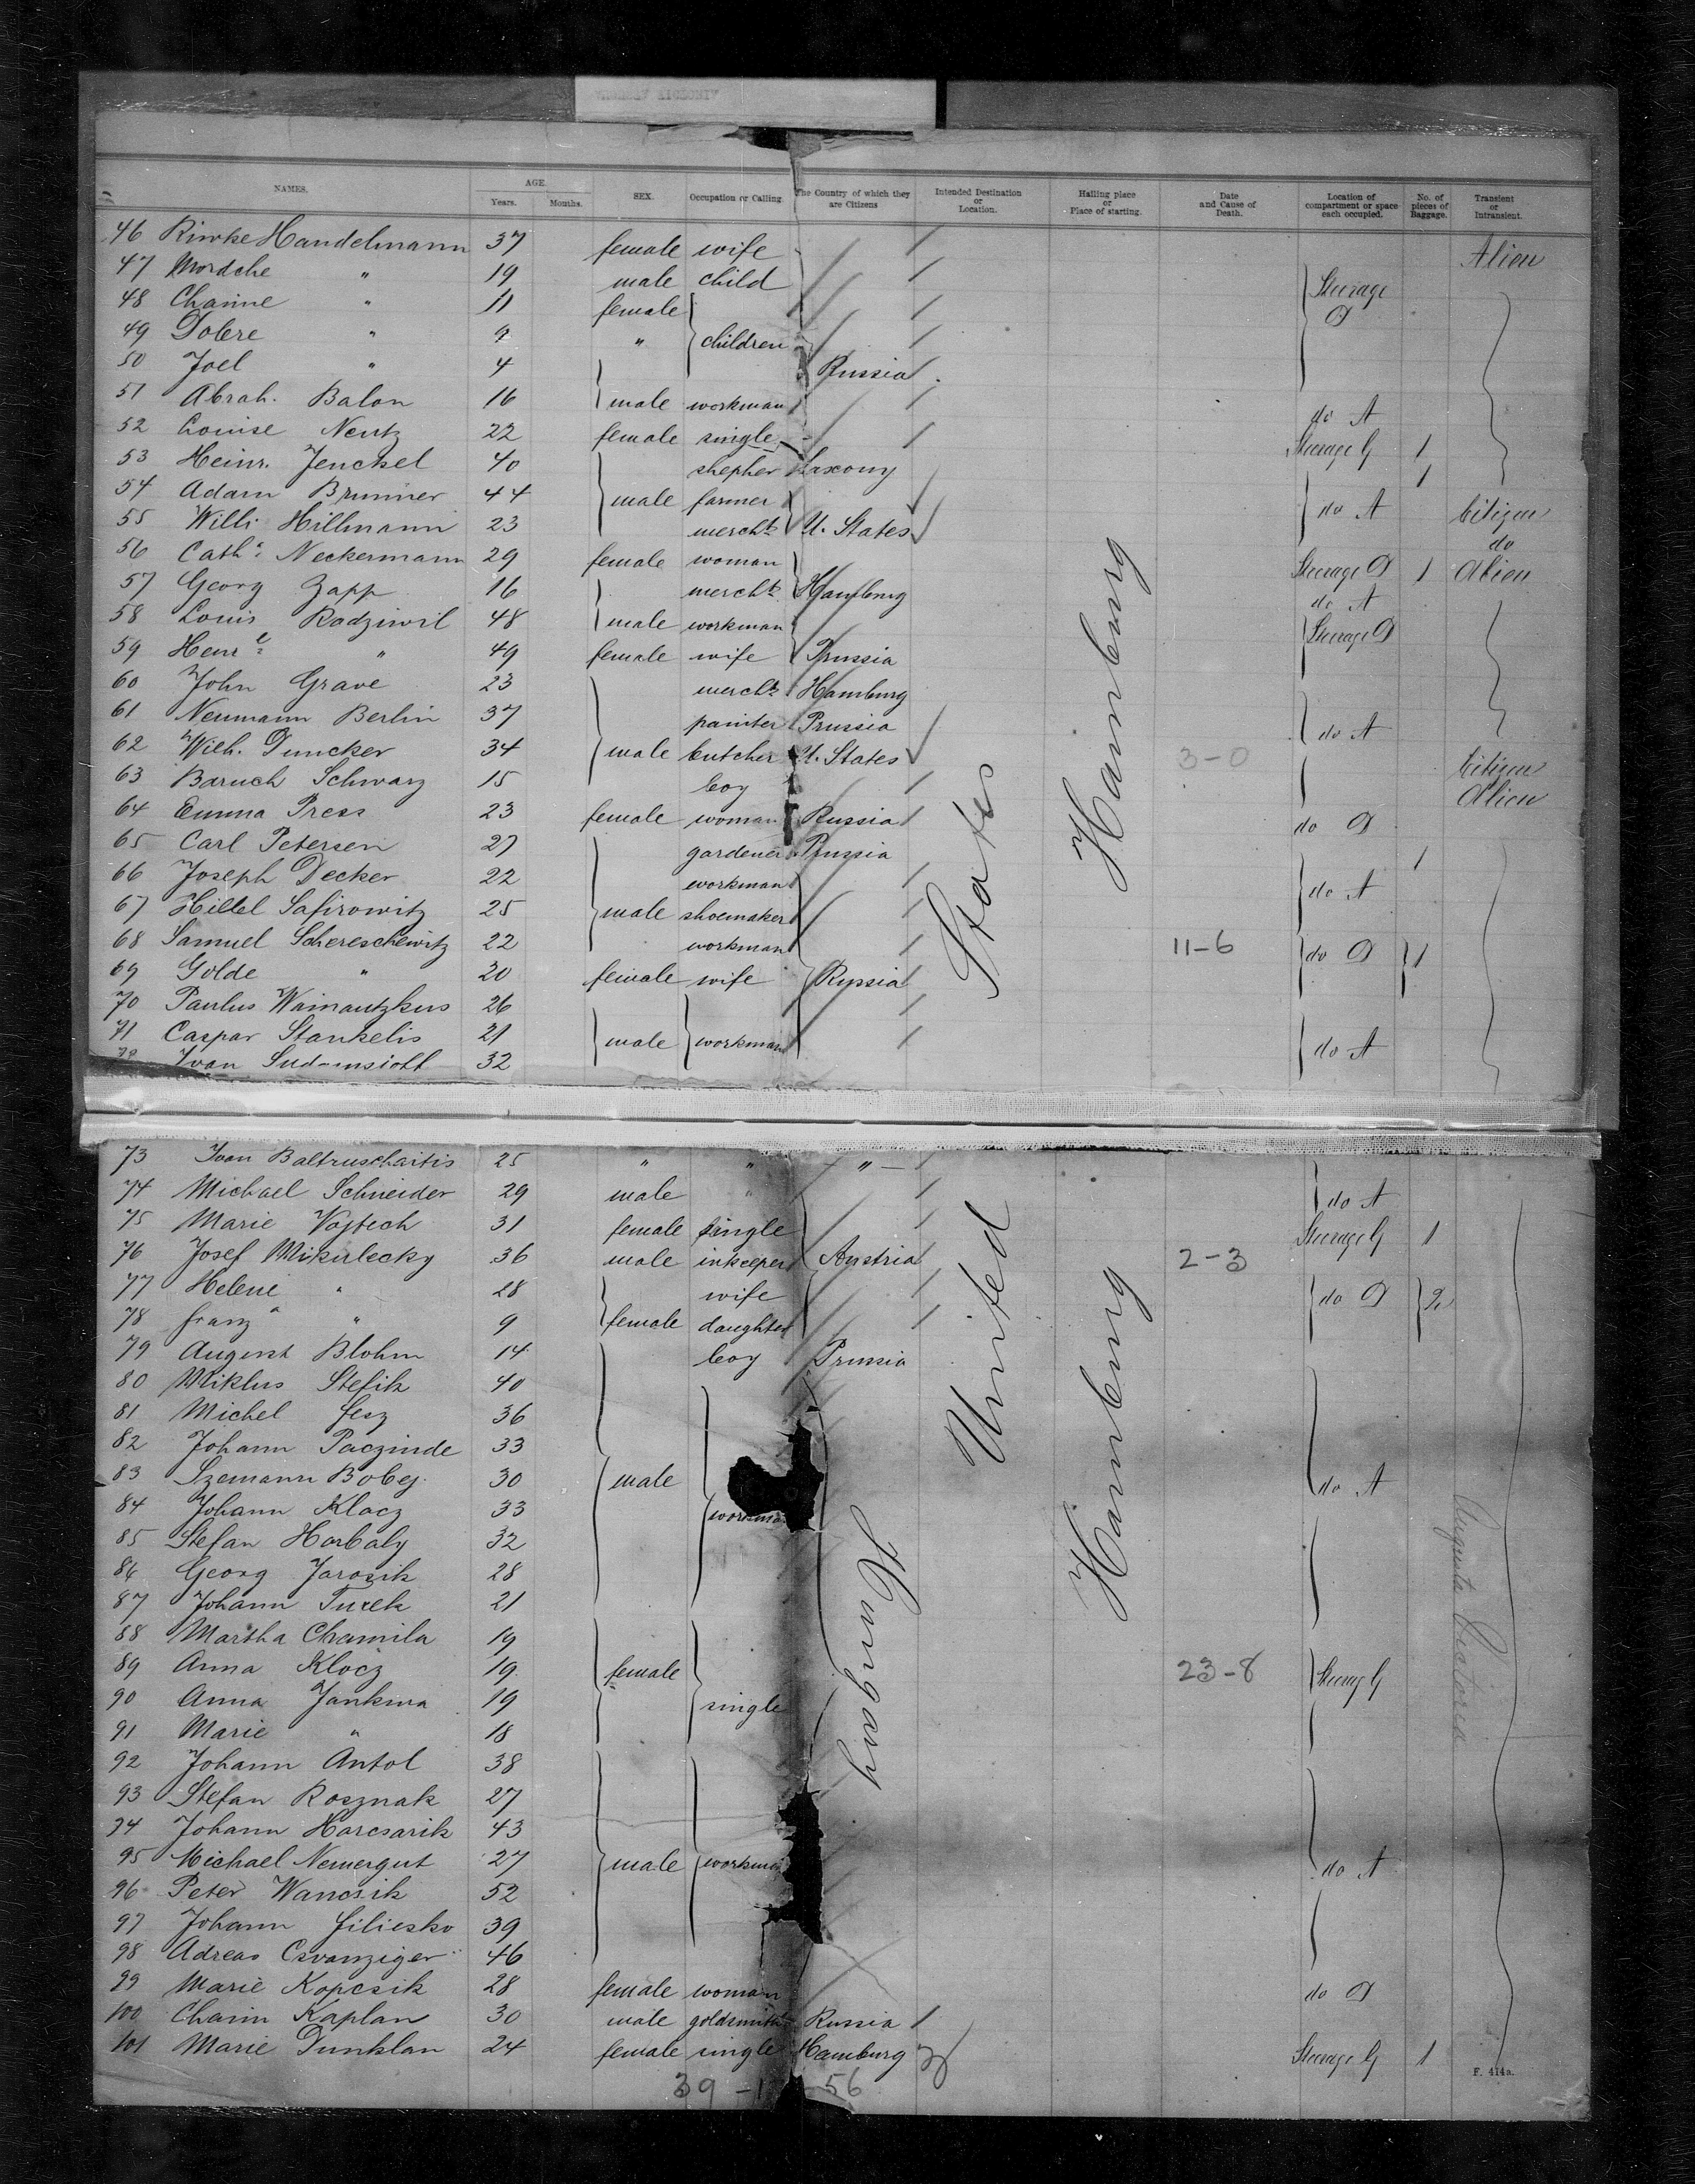 NAMES. AGE. Years. Months. SEX. Occupation or Calling. The Country of which they are Citizens Intended Destination or Location. Hailing place or Place of starting. Date and Cause of Death. Location of compartment or space each occupied. No. of pieces of Baggage. Transient or Intransient.
46 Riwke Handelmann 37 female wife Alien
47 Mordche " 19 male child Steerage
48 Channe " 11 female D
49 Dobre " 9 " children
50 Joel " 4 Russia
51 Abrah. Balon 16 male workman do A
52 Louise Neutz 22 female single Steerage G 1
53 Heinr. Jenckel 40 shepher Saxony 1
54 Adam Brunner 44 male farmer do A Citizen
55 Willi Hillmann 23 mercht U. States do
56 Cath. Neckermann 29 female woman Steerage D 1 Alien
57 Georg Zapp 16 mercht Hamburg do A
58 Louis Radziwil 48 male workman Steerage D
59 Henr " 49 female wife Prussia
60 John Grave 23 mercht Hamburg
61 Neumann Berlin 37 painter Prussia do A
62 Wilh. Duncker 34 male butcher U. States 3-0 Citizen
63 Baruch Schwarz 15 boy Alien
64 Emma Press 23 female woman Russia do D
65 Carl Petersen 27 gardener Prussia 1
66 Joseph Decker 22 workman do A
67 Hillel Safirowitz 25 male shoemaker
68 Samuel Schereschewitz 22 workman 11-6 do D 1
69 Golde " 20 female wife Russia
70 Paulus Wainautzkus 26
71 Caspar Stankelis 21 male workman do A
72 Ivan 32
73 Ivan Baltruschaitis 25 " " "
74 Michael Schneider 29 male " do A
75 Marie Vojtech 31 female single Steerage G 1
76 Josef Mikulecky 36 male inkeeper Austria 2-3
77 Helene " 28 wife do D 2
78 Franz " 9 female daughter
79 August Blohm 14 boy Prussia
80 Miklus Stefik 40
81 Michel Fesz 36
82 Johann Paczinde 33
83 Szemann Bobej 30 male do A
84 Johann Klocz 33 workman
85 Stefan Horbaly 32
86 Georg Jarosik 28
87 Johann Turek 21
88 Martha Chamila 19
89 Anna Klocz 19 female 23-8 Steerag G
90 Anna Jankura 19 single
91 Marie " 18
92 Johann Antol 38
93 Stefan Rosznak 27
94 Johann Harcsarik 43
95 Michael Nemergut 27 male workman do A
96 Peter Wancsik 52
97 Johann Filiesko 39
98 Adreas Csvanziger 46
99 Marie Kopcsik 28 female woman do D
100 Chaim Kaplan 30 male goldsmith Russia
101 Marie Dunklan 24 female single Hamburg Steerage G 1
United States
Hamburg
Hamburg
Hungary
Augusta Victoria
39 - 56
F. 414a.